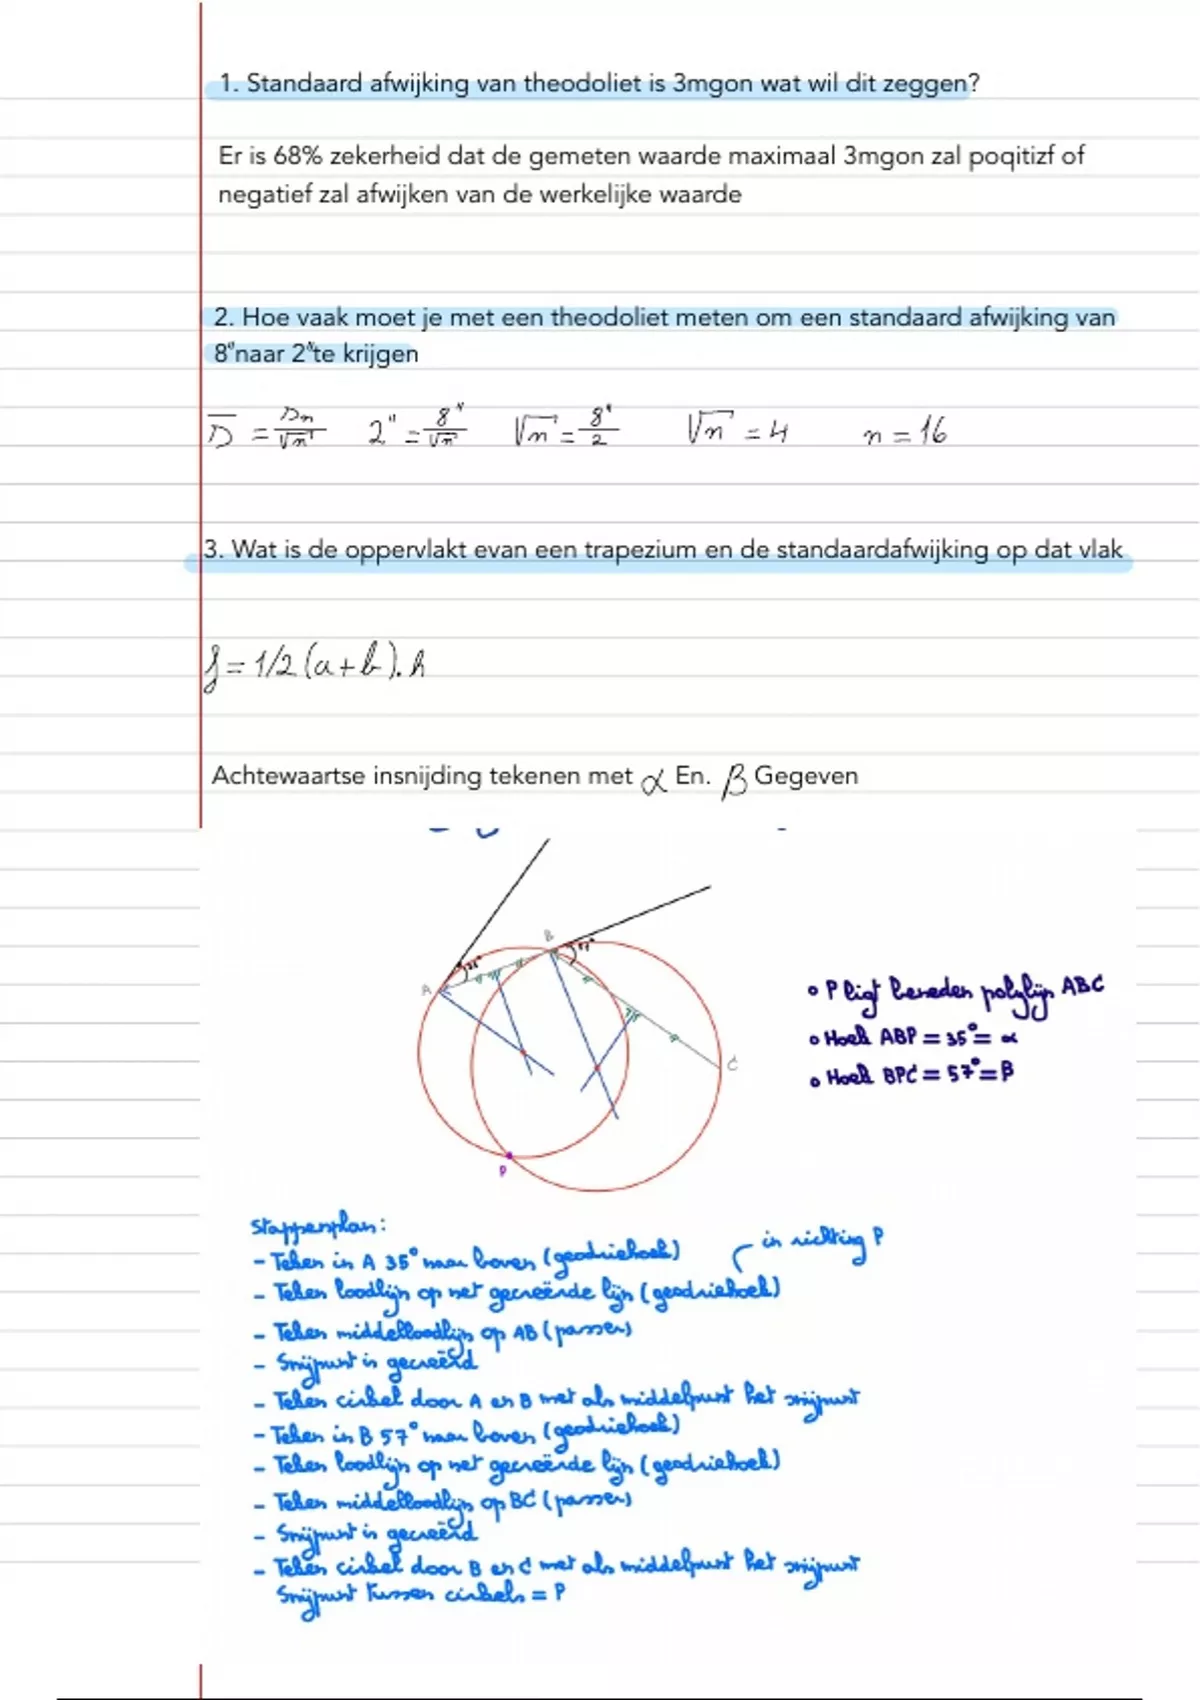 1. Standaard afwijking van theodoliet is 3mgon wat wil dit zeggen?
Er is 68% zekerheid dat de gemeten waarde maximaal 3mgon zal poqitizf of
negatief zal afwijken van de werkelijke waarde
2. Hoe vaak moet je met een theodoliet meten om een standaard afwijking van
8"naar 2"te krijgen
D̅ = Dn/√n 2" = 8"/√n √n = 8"/2 √n = 4 n = 16
3. Wat is de oppervlakt evan een trapezium en de standaardafwijking op dat vlak
f = 1/2 (a+b).h
Achtewaartse insnijding tekenen met α En. β Gegeven
B
57°
35°
A
C
P
° P ligt beneden polylijn ABC
° Hoek ABP = 35° = α
° Hoek BPC = 57° = β
Stappenplan:
- Teken in A 35° naar boven (geodriehoek)
in richting P
- Teken loodlijn op net gecreëerde lijn (geodriehoek)
- Teken middelloodlijn op AB (passer)
- Snijpunt is gecreëerd
- Teken cirkel door A en B met als middelpunt het snijpunt
- Teken in B 57° naar boven (geodriehoek)
- Teken loodlijn op net gecreërde lijn (geodriehoek)
- Teken middelloodlijn op BC (passer)
- Snijpunt is gecreëerd
- Teken cirkel door B en C met als middelpunt het snijpunt
Snijpunt tussen cirkels = P